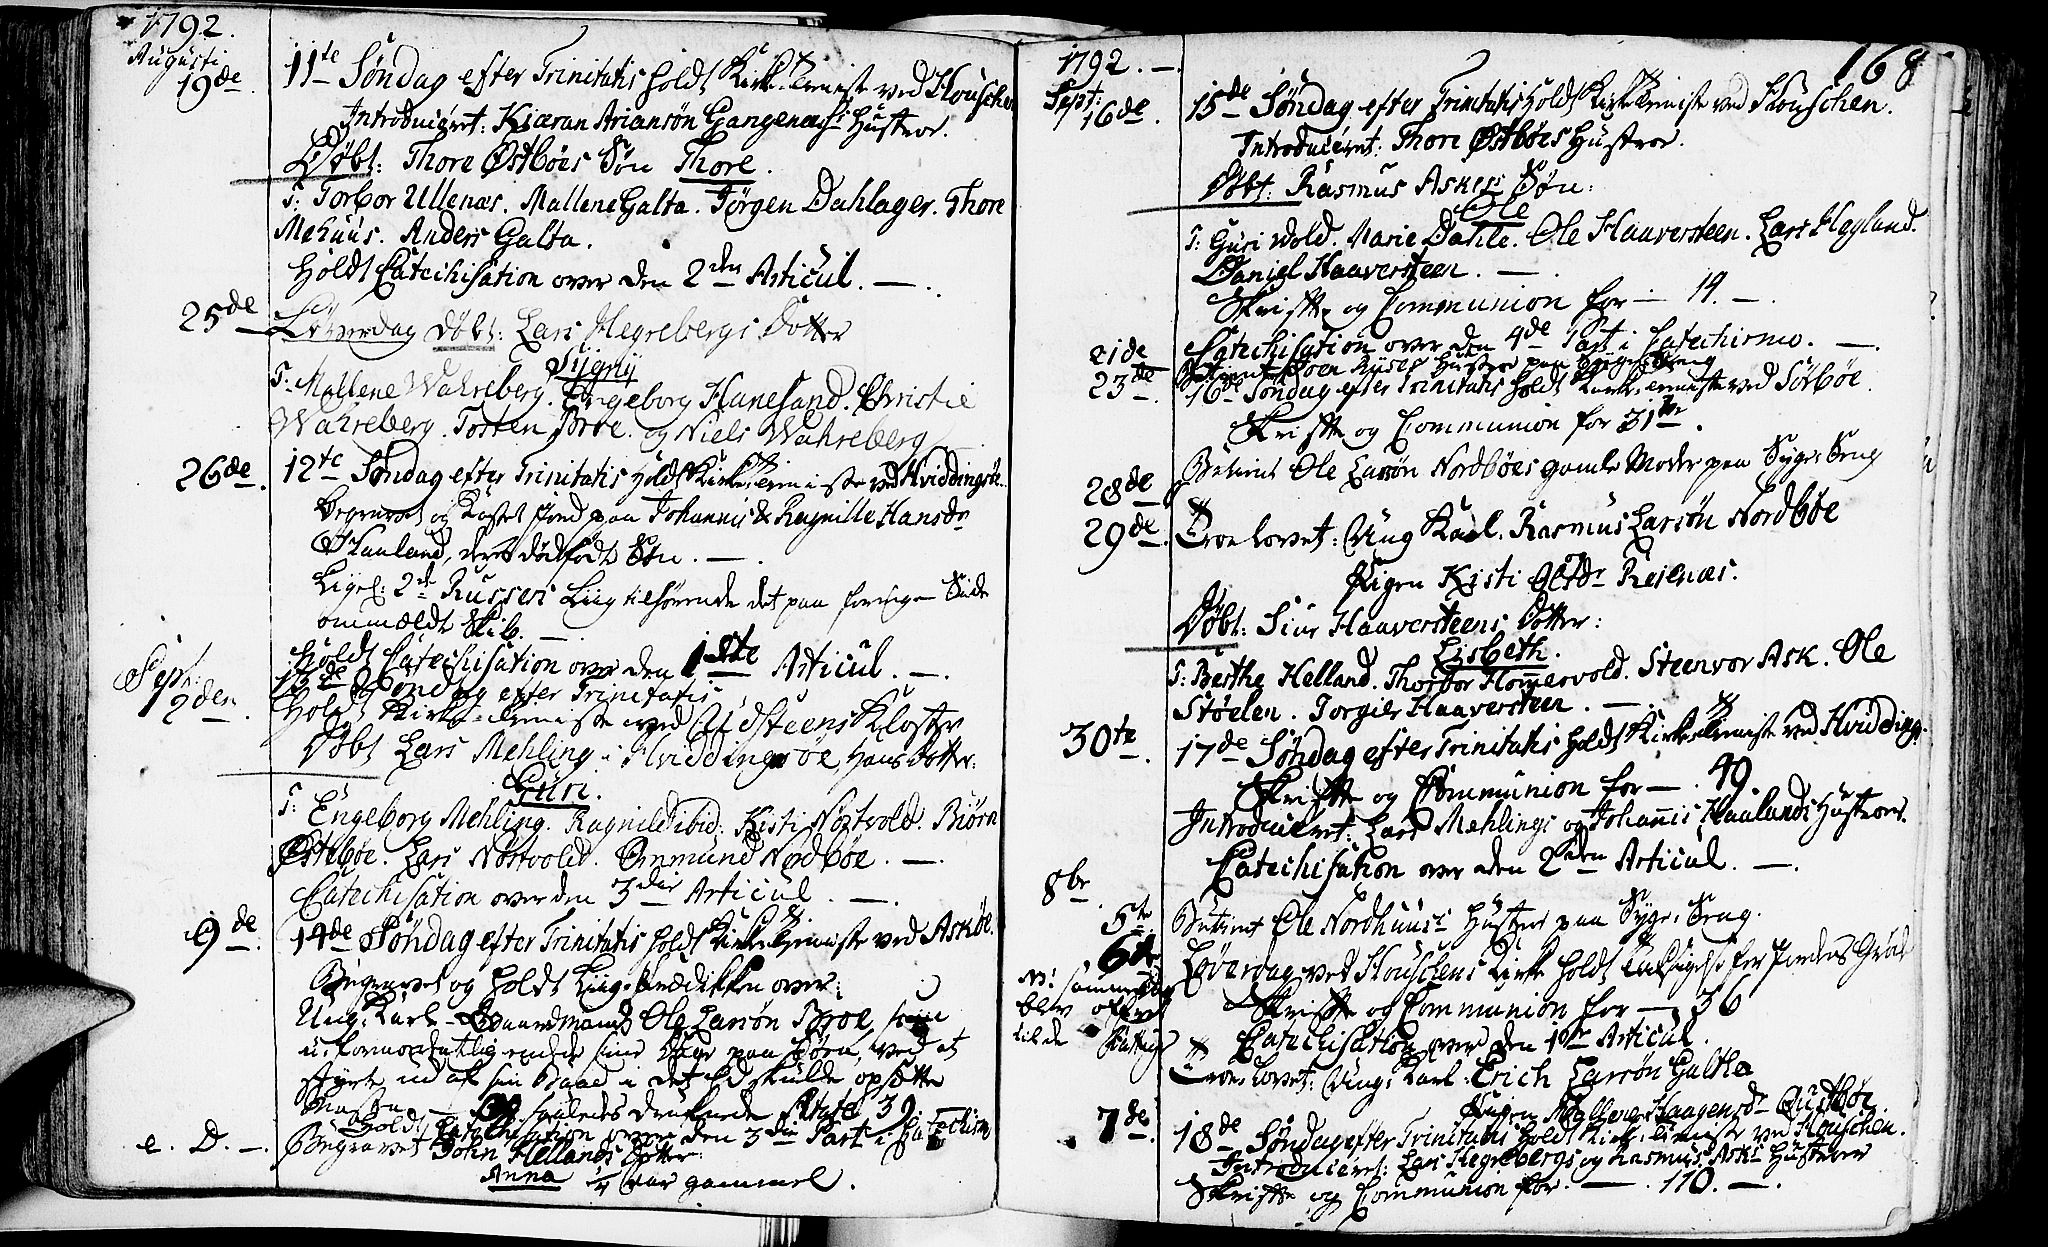 1792.
Augusti
19de. 11te Søndag efter Trinitatis holdt Kirke-tieniste ved Houschen
Introduceret: Kiæran Ariansøn Gangenæs's Hustroe.
Døbt: Thore Østbøes Søn Thore.
T: Torbor Ullenæs. Mallene Galta. Jørgen Dahlager. Thore
Mehuus. Anders Galta.
holdt Catechisation over den 2den Articul. —.
25de Løverdag Døbt: Lars Hegrebergs Dotter
Sygrij
T: Mallene Wahreberg. Engeborg Hanesand. Christie
Wahreberg. Torsten Broe. og Niels Wahreberg
26de. 12te Søndag efter Trinitatis holdt Kirke-tieniste ved Hviddingsøe.
Begravet og Kastet Jord paa Johannis & Ragnille Hansdr
Haaland, deres dødfødt Søn. —.
Ligel: 2de Russers Liig tilhørende det paa forrige Side
ommældt Skib. —
holdt Catechisation over den 1ste Articul. —.
Sept:
2den. 13de Søndag efter Trinitatis
holdt Kirke-tieniste ved Udsteens Kloster
Døbt Lars Mehling i Hviddingsøe, Hans Dotter:
Guri.
T: Engeborg Mehling. Ragnild ibid: Kisti Nøstvold. Biørn
Østebøe. Lars Nøstvold. Ommund Nordbøe. —.
Catechisation over den 3die Articul. —.
9de. 14de Søndag efter Trinitatis holdt Kirke-tieniste ved Askøe.
Begravet og holdt Liig-Prædikken over:
Ung-Karl Ole Larsøn Broe, som
u-formodentlig endte sine Dage paa Søen, ved at
styrte ud af sin Baad i det hand skulde opsætte
Masten — saaledes druknede Ætate 39
holdt Catechisation over den 3die Part i Catechism
e. D. —. Begravet John Hellands Dotter:
Anna 1/4 aar gammel.
168
1792. —.
Sept:
16de. 15de Søndag efter Trinitatis holdt Kirke-tieniste ved Houschen.
Introduceret: Thore Østbøes Hustroe.
Døbt: Rasmus Askes Søn:
Ole
T: Guri Wold. Marie Dahle. Ole Haaversteen. Lars Hagland.
Daniel Haaversteen. —.
Skrifte og Communion for — 14. —.
Catechisation over den 4de Part i Catechismo. —.
21de Betient Hustro paa Syge-Seng
23de. 16de Søndag efter Trinitatis holdt Kirke-tieniste ved Sørbøe.
Skrifte og Communion for 31te.
28de Betient Ole Larsøn Nordbøes gamle Moder paa Syge-Seng
29de. Troe-lovet: Ung Karl. Rasmus Larsøn Nordbøe
Pigen Kisti Olsdr Reilnæs.
Døbt: Siur Haaversteens Dotter:
Lisbeth.
T: Berthe Helland. Thorbor Hommervold. Steenvor Ask. Ole
Støelen. Torgier Haaversteen. —.
30te. 17de Søndag efter Trinitatis holdt Kirke-tieniste ved Hvidding:
Skrifte og Communion for —. 49.
Introduceret: Lars Mehlings og Johannis Haalands Hustroer.
Catechisation over den 2den Articul. —.
8br.
5te Betient Ole Nordhuus's Hustro paa Syge-Seng.
6te Løverdag ved Houschens Kirke holdt Taksigelse for Jordens Grøde
Skrifte og Communion for —. 36
Catechisation over den 1ste Articul.
Troe-lovet: Ung-Karl: Erich Larsøn Galthe
Pigen Mallene Haagensdr Austbøe
7de. 18de Søndag efter Trinitatis holdt Kirke-tieniste ved Houschen.
Introduceret: Lars Hegrebergs og Rasmus Asks Hustroer
Skrifte og Communion for. —. 110. —.